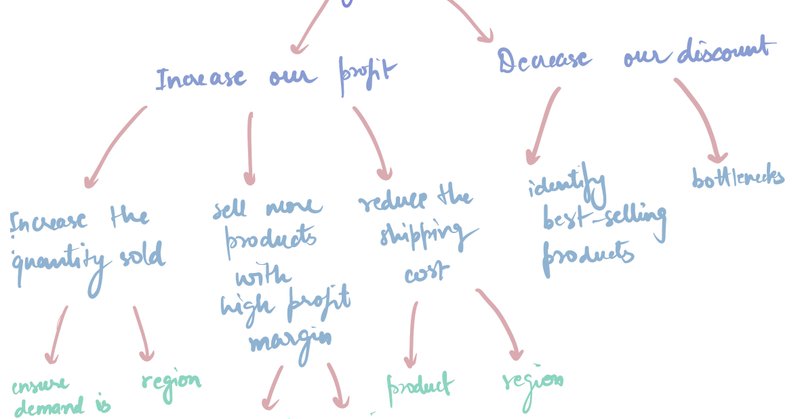 Increase our profit
Decrease our discount
Increase the
quantity sold
sell more
products
with
high profit
margin
reduce the
shipping
cost
identify
best-selling
products
bottlenecks
ensure
demand is
region
product
region